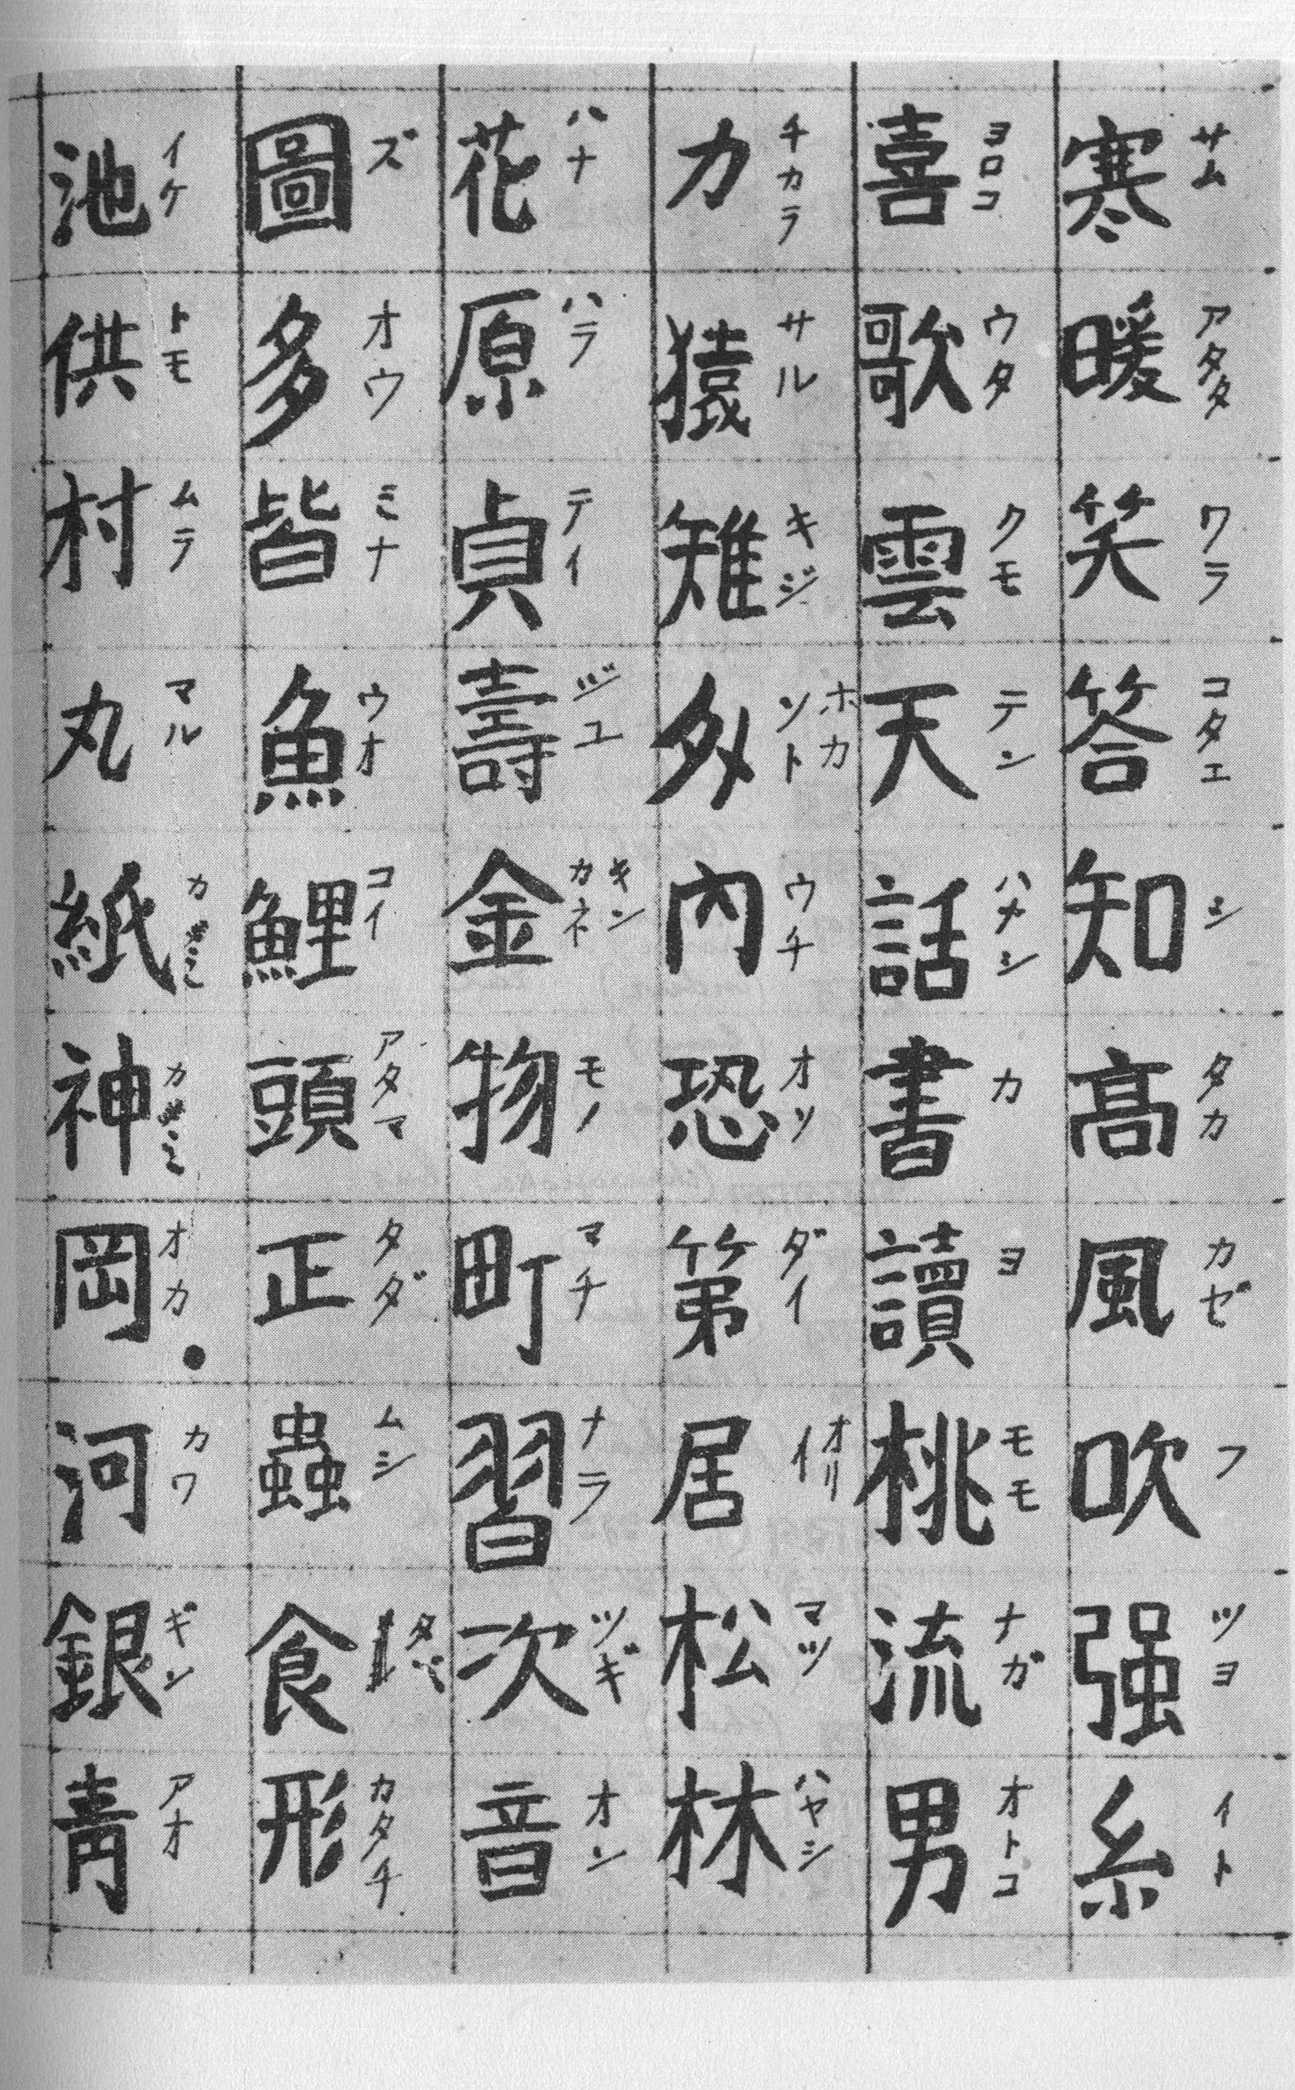 寒 サム 暖 アタタ 笑 ワラ 答 コタエ 知 シ 高 タカ 風 カゼ 吹 フ 强 ツヨ 糸 イト
喜 ヨロコ 歌 ウタ 雲 クモ 天 テン 話 ハナシ 書 カ 讀 ヨ 桃 モモ 流 ナガ 男 オトコ
力 チカラ 猿 サル 雉 キジ 外 ホカ ソト 内 ウチ 恐 オソ 第 ダイ 居 オリ イ 松 マツ 林 ハヤシ
花 ハナ 原 ハラ 貞 テイ 壽 ジユ 金 キン カネ 物 モノ 町 マチ 習 ナラ 次 ツギ 音 オン
圖 ズ 多 オウ 皆 ミナ 魚 ウオ 鯉 コイ 頭 アタマ 正 タダ 蟲 ムシ 食 タベ 形 カタチ
池 イケ 供 トモ 村 ムラ 丸 マル 紙 カミ 神 カミ 岡 オカ 河 カワ 銀 ギン 靑 アオ